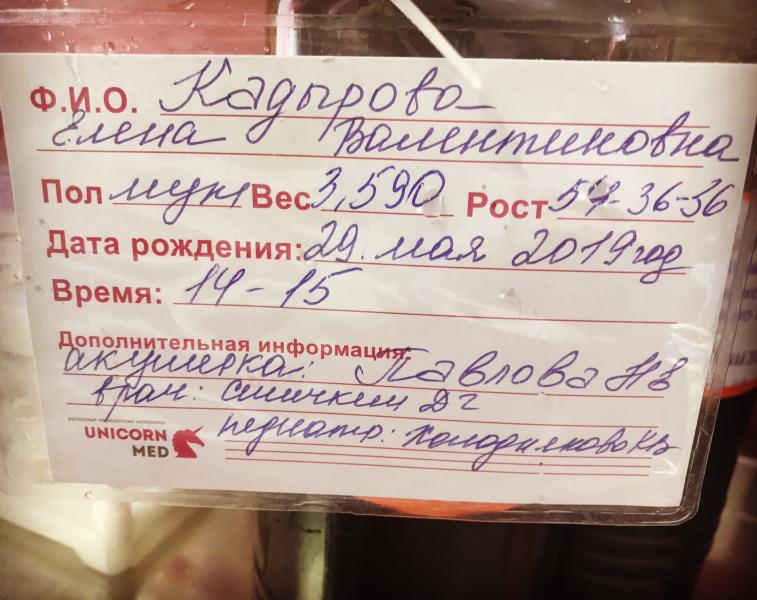 Ф.И.О. Кадырова
Елена Валентиновна
Пол муж Вес 3,590 Рост 54-36-36
Дата рождения: 29. мая 2019 год
Время: 14-15
Дополнительная информация:
акушерка: Павлова Н В
врач: Сничкин Д Г
расходные медицинские материалы
UNICORN
MED
педиатр: